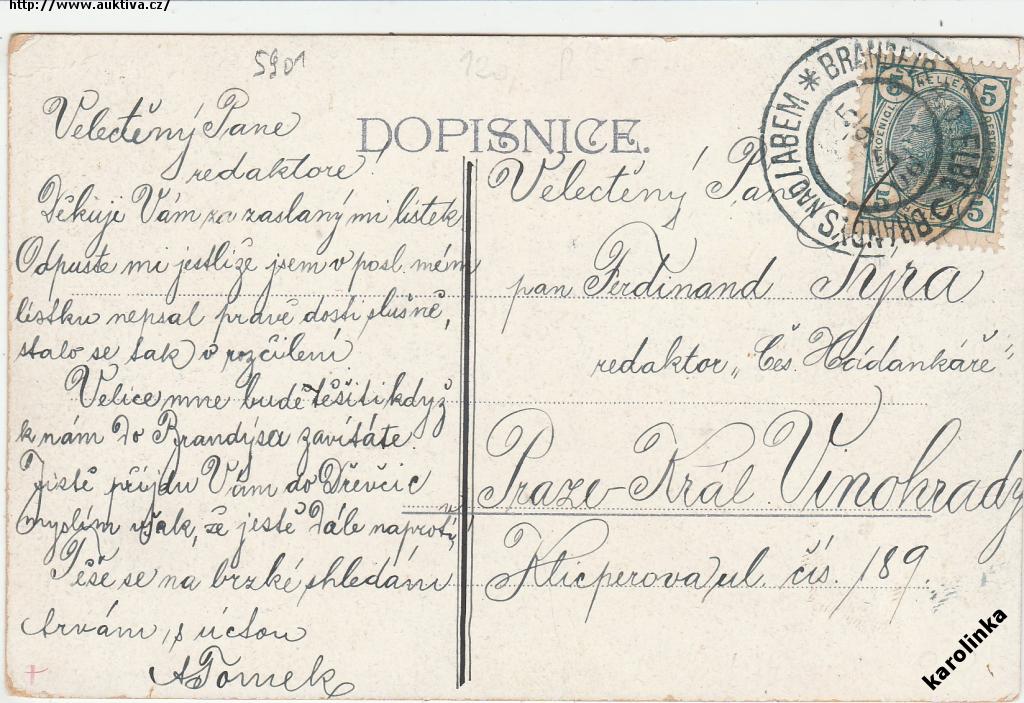 http://www.auktiva.cz/
5901
120
DOPISNICE.
Velectěný Pane
redaktore!
Děkuji Vám za zaslaný mi lístek
Odpuste mi jestliže jsem v posl. mém
lístku nepsal právě dosti slušně,
stalo se tak v rozčilení
Velice mne bude těšiti když
k nám do Brandýsa zavítáte.
Jistě přijdu Vám do Dřevčic
myslím však, že ještě dále naproti,
Těše se na brzké shledání
trvám, s úctou
A Tomek
Velectěný Pan
pan Ferdinand Sýra
redaktor „Čes. Hádankáře"
Praze-Král Vinohrady
Klicperova ul. čís. 189.
BRANDEIS A. D. ELBE
BRANDÝS NAD LABEM
5 HELLER 5
5 5
karolinka